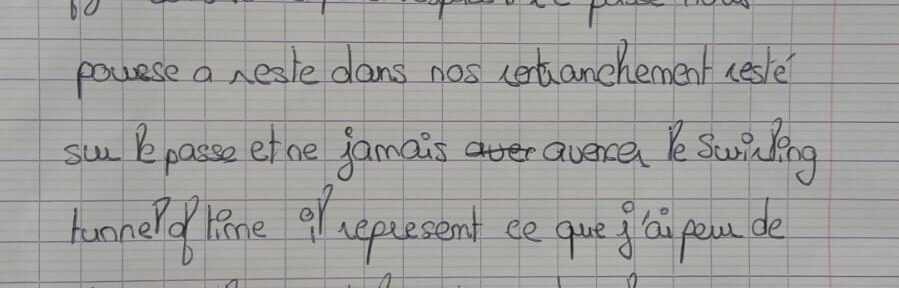 pousse a reste dans nos retranchement resté
sur le passe et ne jamais aver avencer le swirling
tunnel of time il represent ce que j'ai peur de